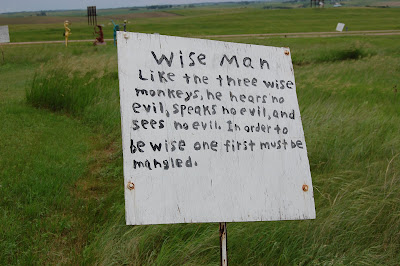 Wise Man
Like the three wise
monkeys, he hears no
evil, speaks no evil, and
sees no evil. In order to
be wise one first must be
mangled.